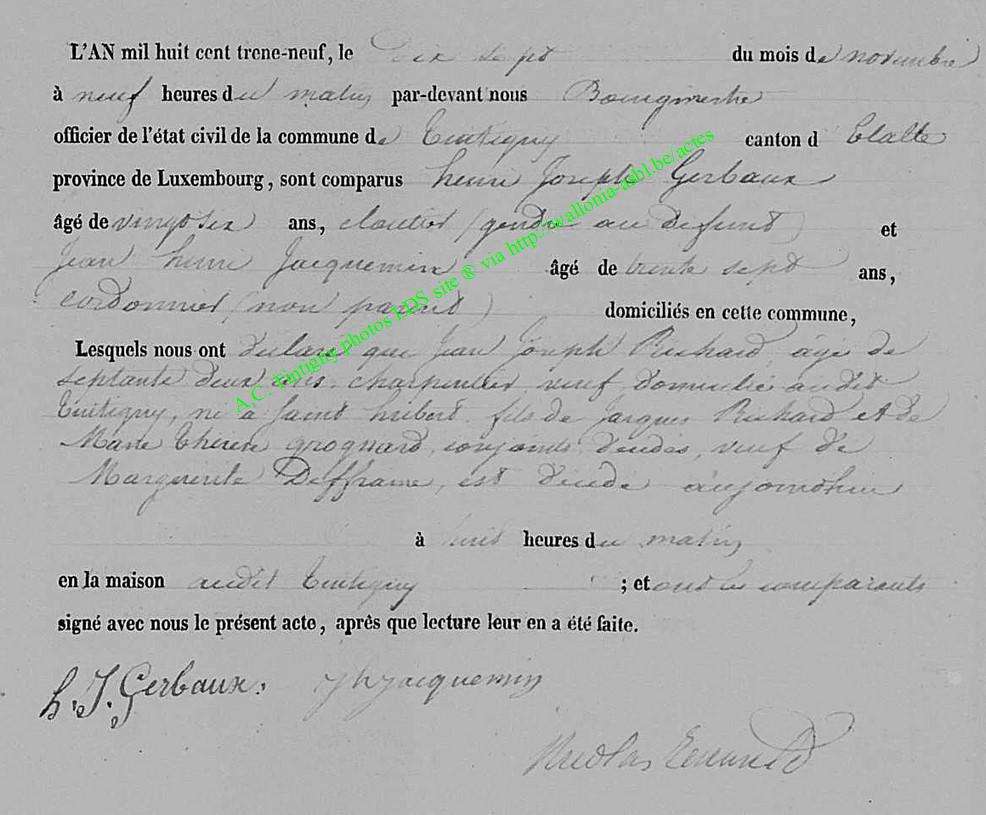 L'AN mil huit cent trene-neuf, le Dix sept du mois de novembre
à neuf heures du matin par-devant nous Bourgmestre
officier de l'état civil de la commune de Tintigny canton d'Etalle
province de Luxembourg, sont comparus henri Joseph Gerbaux
âgé de vingt six ans, cloutier (gendre au defunt) et
Jean henri Jacquemin âgé de trente sept ans,
cordonnier (non parent) domiciliés en cette commune,
Lesquels nous ont déclaré que Jean Joseph Richard, âgé de
septante deux ans, charpentier, veuf, domicilié audit
Tintigny, né à Saint hubert, fils de Jacques Richard et de
Marie thérèse grognard, conjoints décédés, veuf de
Marguerite Defframe, est décédé aujourdhui
à huit heures du matin
en la maison audit Tintigny ; et ont les comparants
signé avec nous le présent acte, après que lecture leur en a été faite.
h. J. Gerbaux. J h Jacquemin
Nicolas
A.C. Tintigny photos LDS site ® via http://wallonia-asbl.be/actes